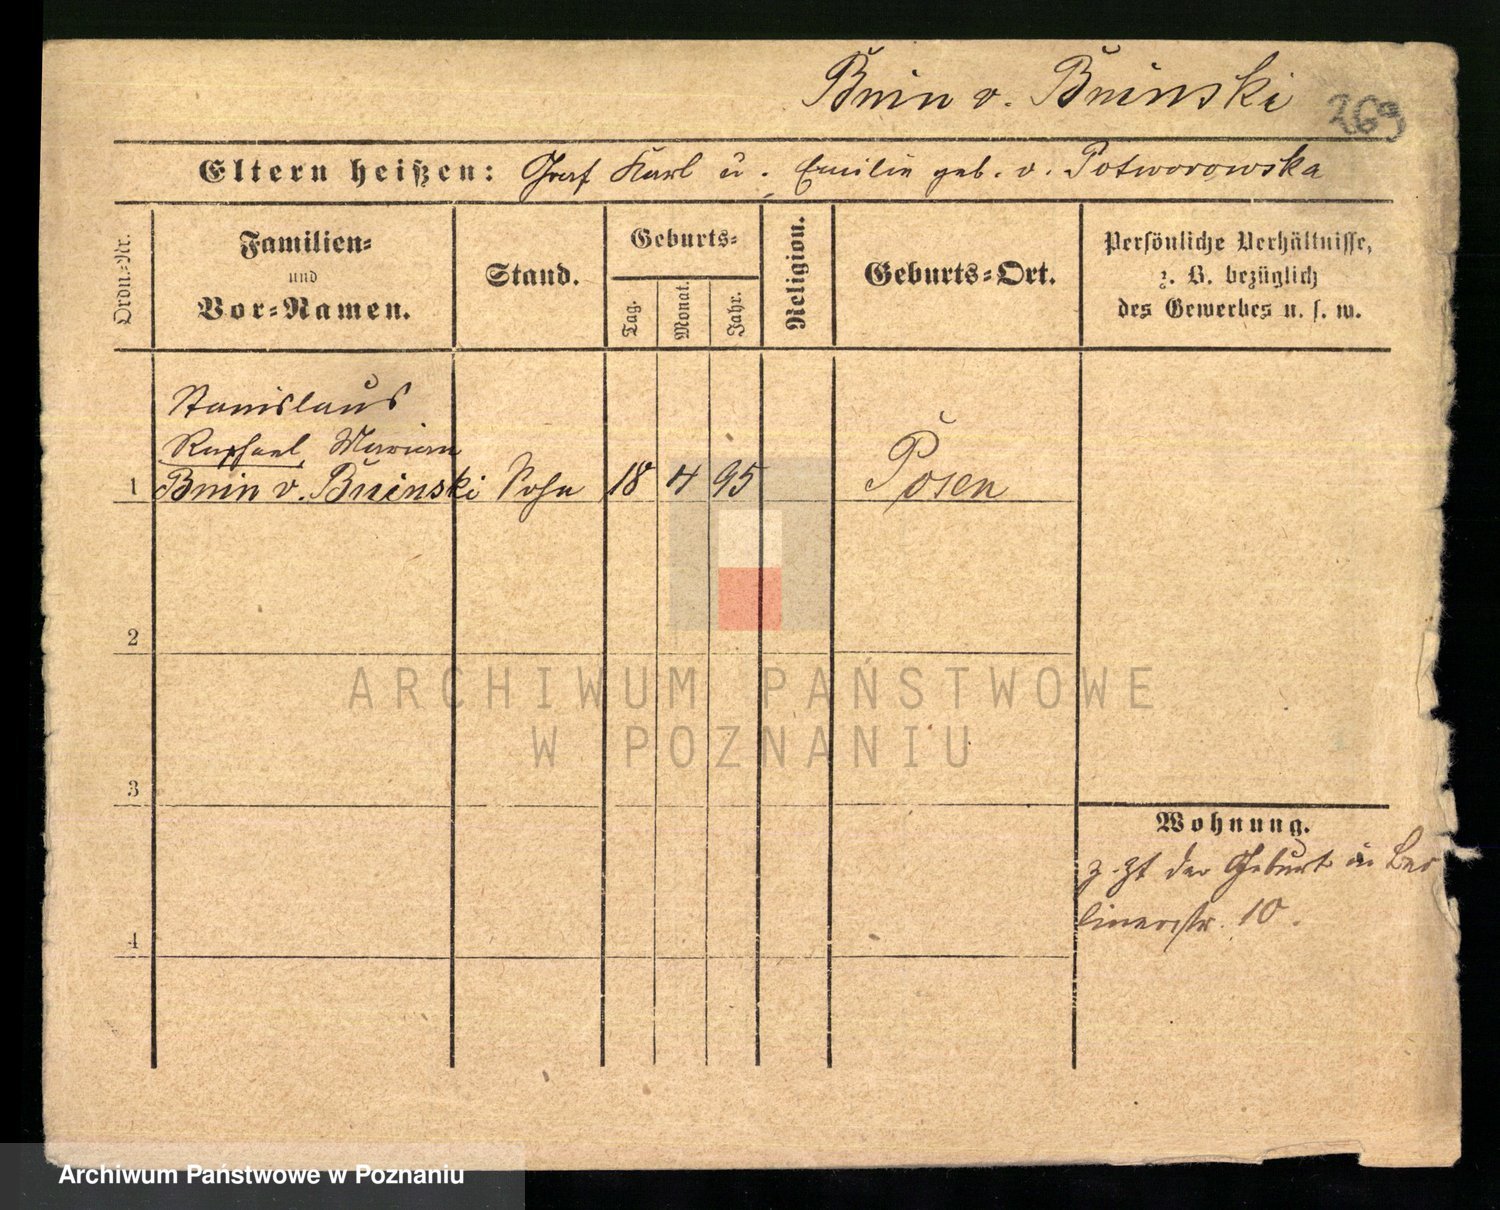 Bnin v. Bninski 269
Eltern heißen: Graf Karl u. Emilie geb. v. Potworowska
Ordn.-Nr.
Familien-
und
Vor-Namen.
Stand.
Geburts-
Tag.
Monat.
Jahr.
Religion.
Geburts-Ort.
Persönliche Verhältnisse,
z. B. bezüglich
des Gewerbes u. s. w.
Stanislaus
Raphael, Marian
1 Bnin v. Bninski Sohn 18 4 95 Posen
2
3
4
Wohnung.
z. Zt der Geburt in Ber
linerstr. 10.
ARCHIWUM PAŃSTWOWE
W POZNANIU
Archiwum Państwowe w Poznaniu